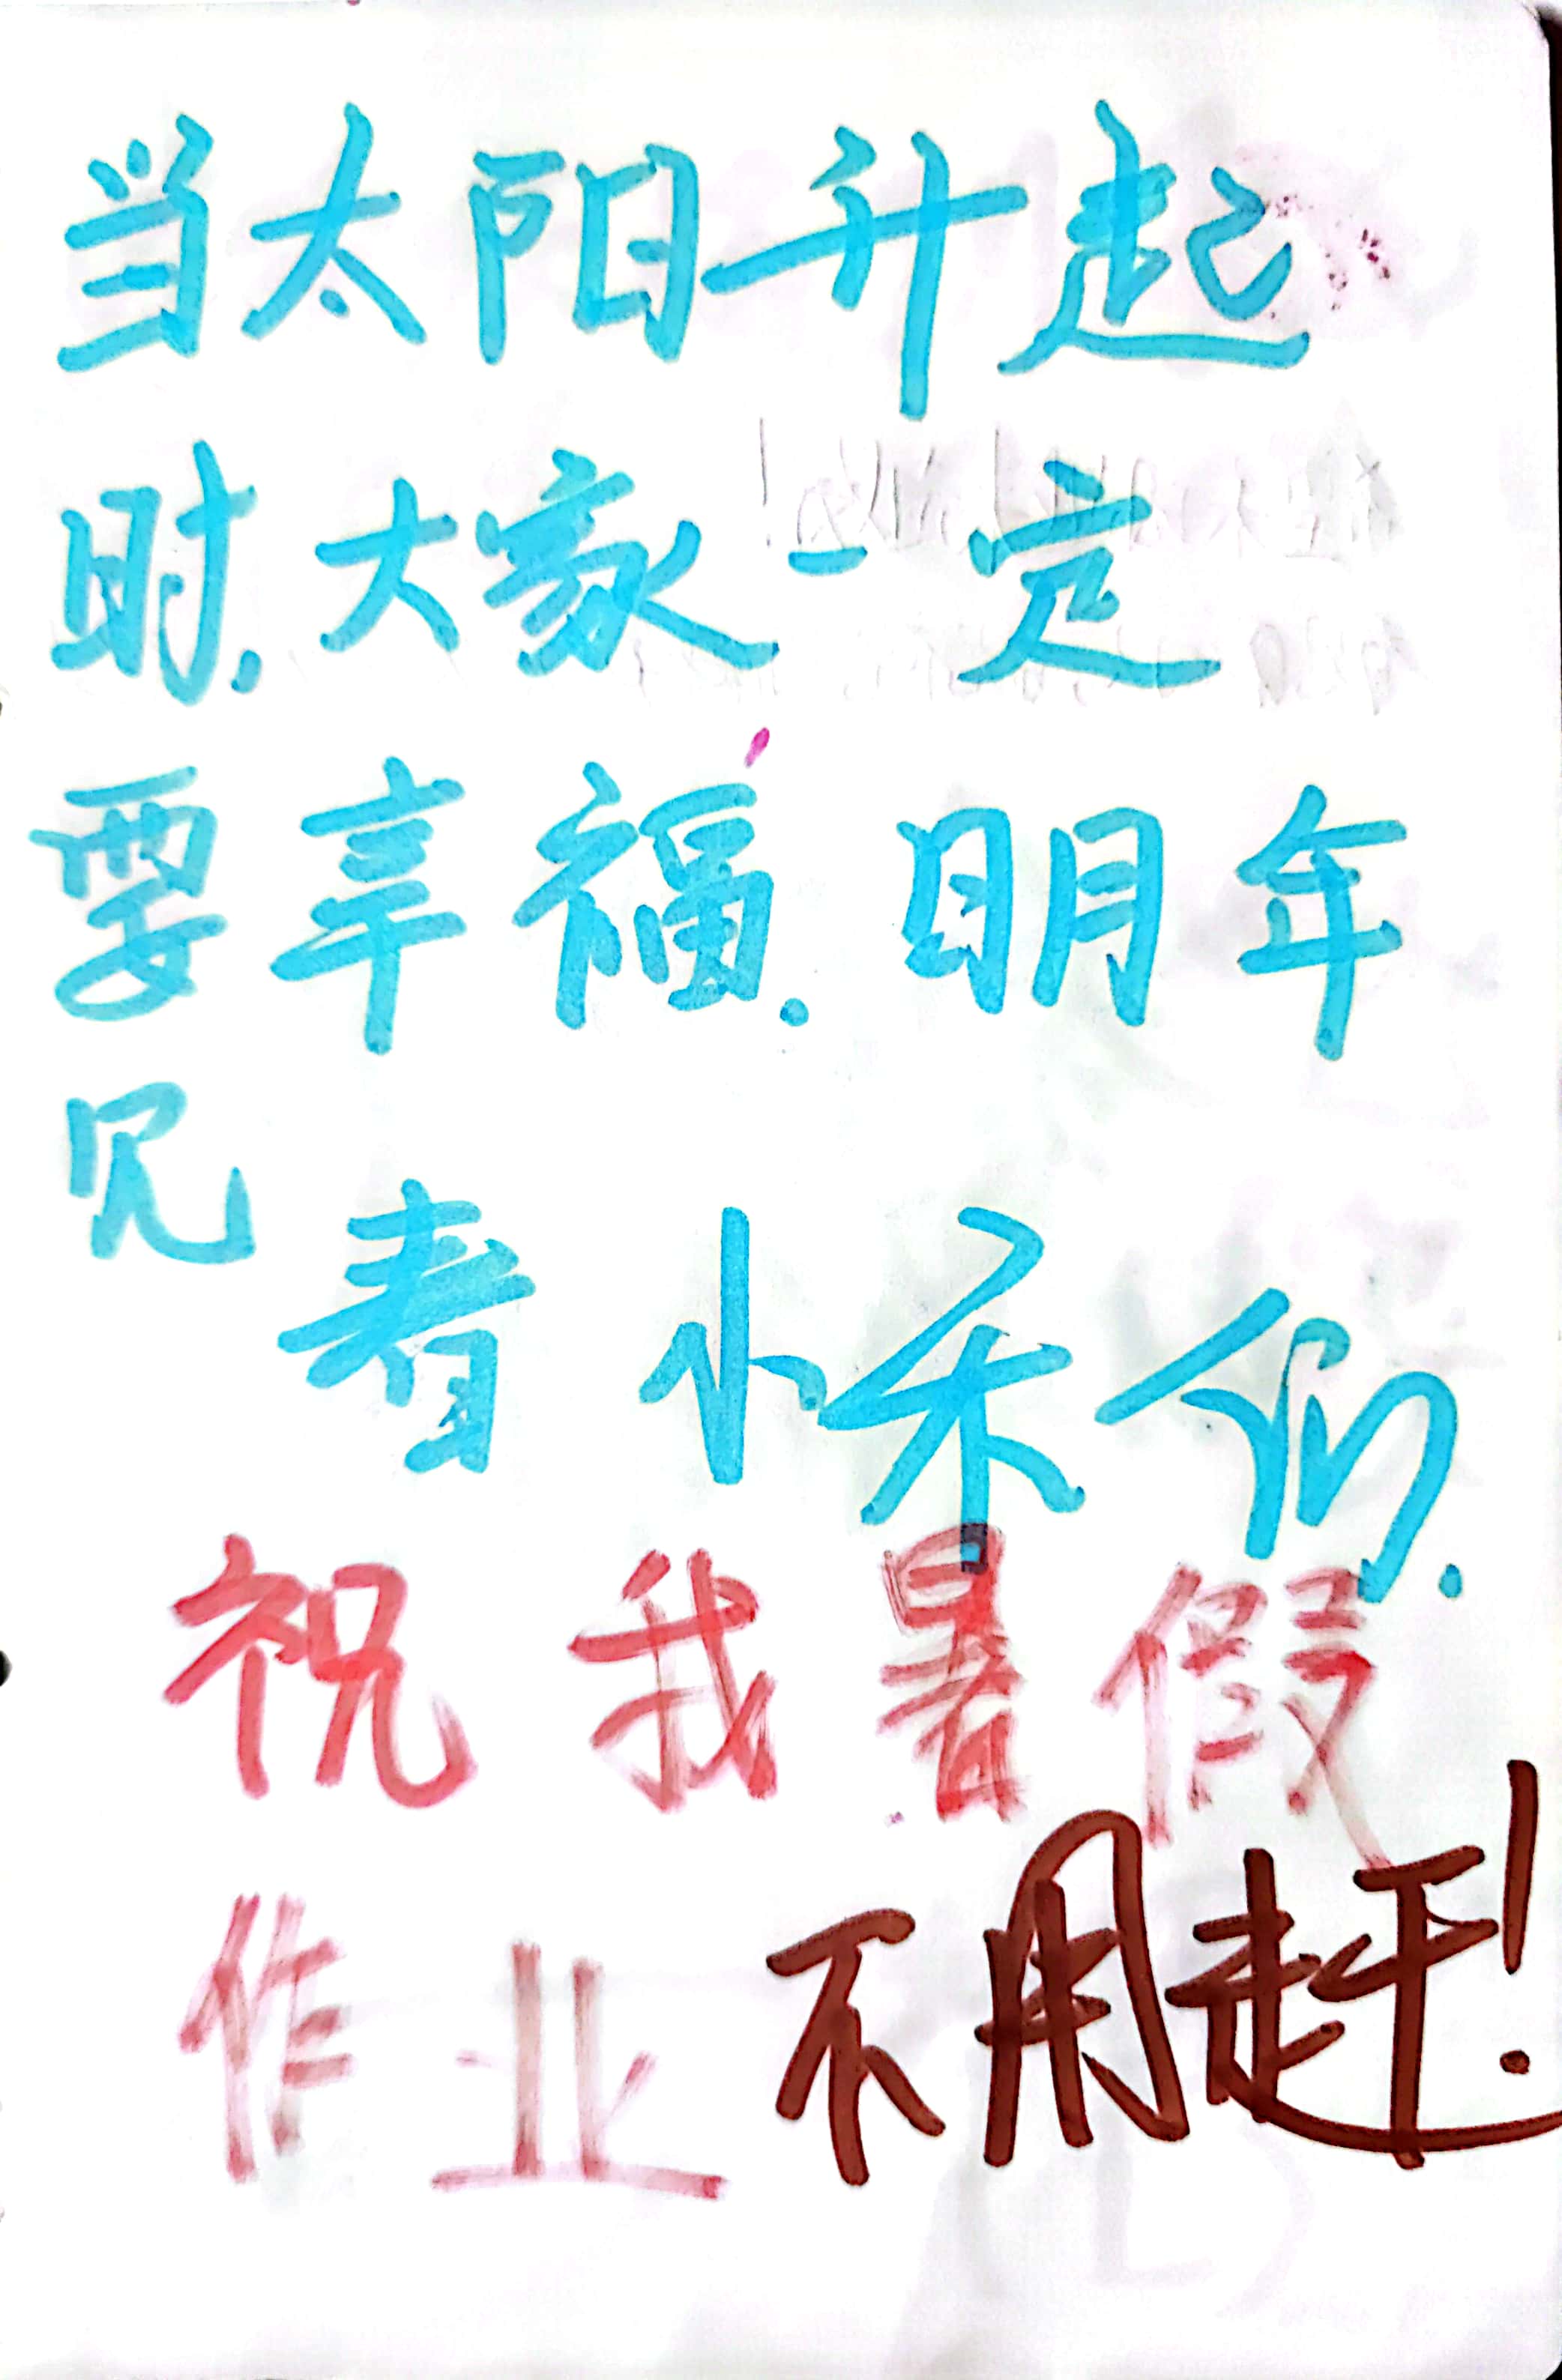 当太阳升起
时,大家一定
要幸福.明年
见
小禾们.
祝我暑假
作业不用赶!